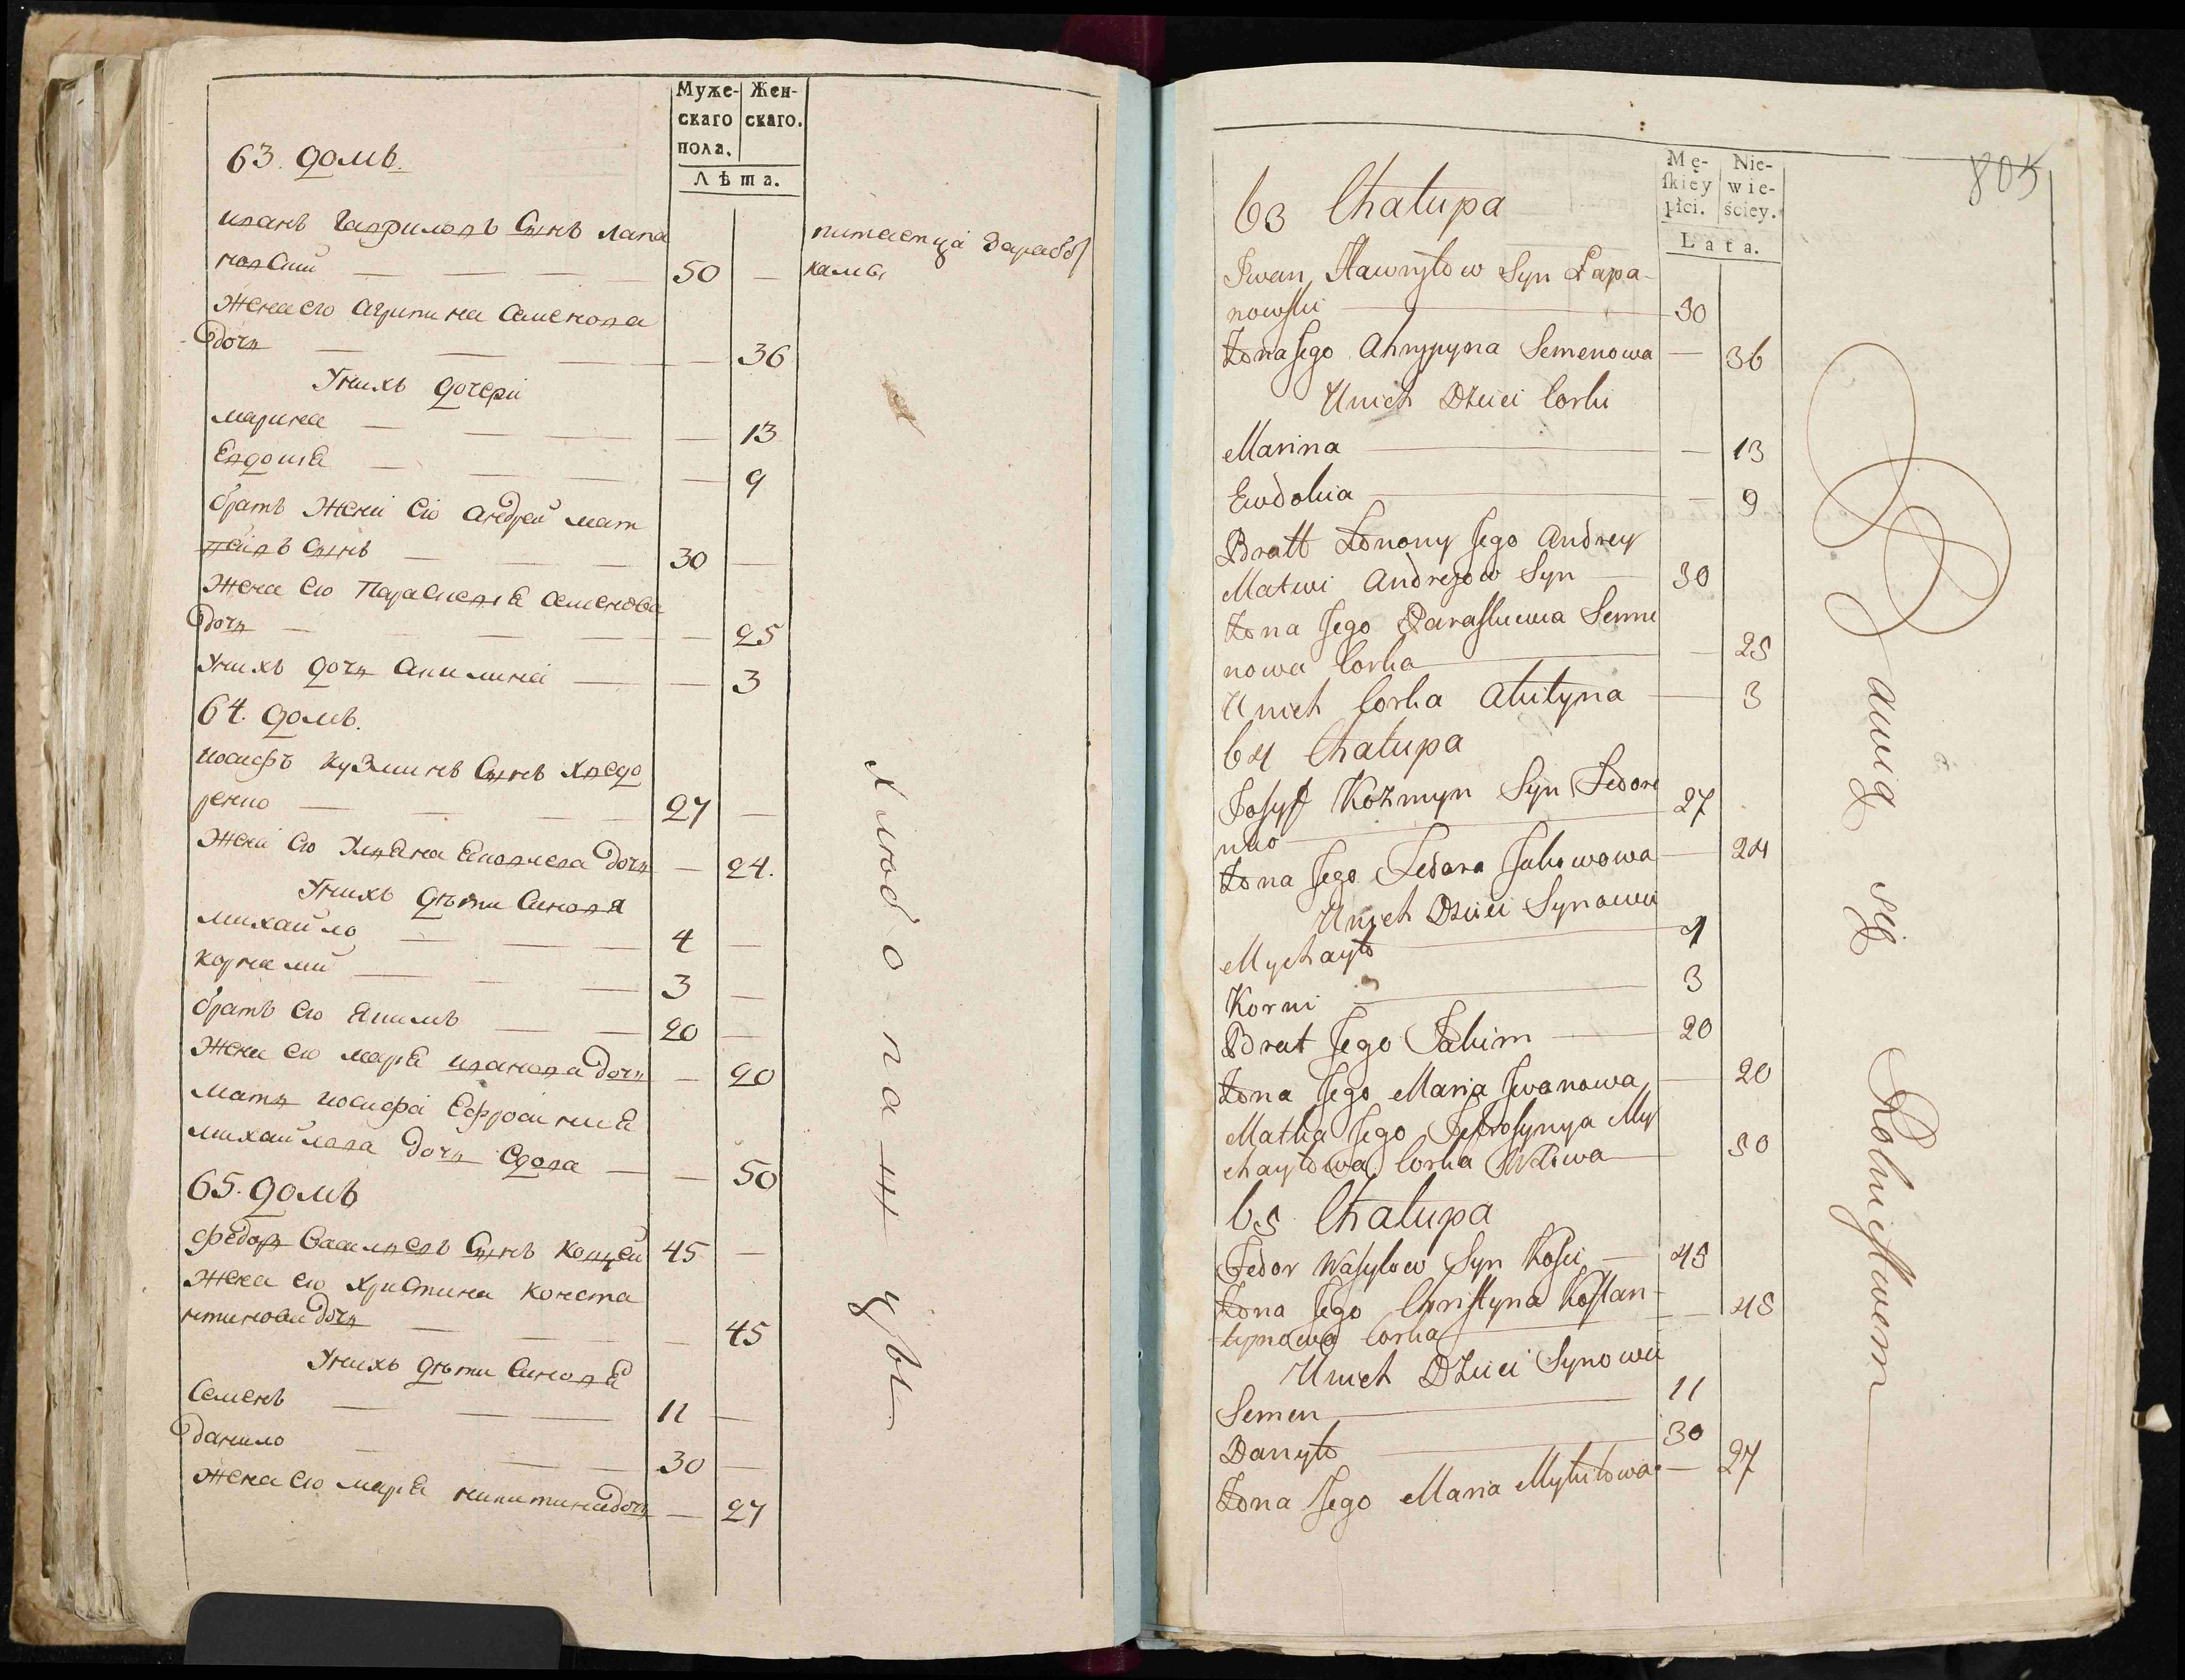 Муже-
скаго
пола.
Жен-
скаго.
Лѣта.
63. домъ.
иванъ Гавриловъ Сынъ лапа
новский — 50 —
питается зараб̾от
ками
Жена его агрипина Семенова
дочь — 36
У нихъ дочери
марина — 13
Евдокиѣ — 9
братъ Жени его андрей мат
вѣивъ Сынъ — 30 —
Жена его Параскевиѣ Семенова
дочь — 25
У нихъ дочь акилина — 3
64. домъ.
иосифъ Кузминъ Сынъ Хведо
ренко — 27 —
Жена его Ульѣна Ековлева дочь — 24.
У нихъ дѣти Синовя
михайло — 4 —
корнѣлий — 3 —
братъ его Екимъ — 20 —
Жена его марѣ иванова дочь — 20
мать иосифа Ефросиниѣ
михайлова дочь вдова — 50
65. домъ
федор Васильевъ Сынъ Коцей 45 —
Жена его Христина конста
нтинова дочь — 45
У нихъ дѣти Синовѣ
Семенъ — 11 —
данило — 30 —
Жена его марѣ никитина дочь — 27
хлѣбопашцы
805
Mę-
ſkiey
płci.
Nie-
wie-
ściey.
Lata.
63 Chałupa
Jwan Hawryłow Syn Łapa-
nowſki — 50
Żona Jego Ahrypyna Semenowa — 36
U nich Dzieci Corki
Marina — 13
Ewdokia — 9
Bratt Żonony Jego Andrey
Matwi Andrejow Syn — 30
Żona Jego Paraſkiewia Seme
nowa Corka — 25
U nich Corka Akilyna — 3
64 Chałupa
Josyff Kozmyn Syn Fedore
nko — 27
Żona Jego Fedora Jakowowa — 24
U nich Dzieci Synowie
Mychayło — 4
Korni — 3
Brat Jego Jakim — 20
Żona Jego Maria Jwanowa — 20
Matka Jego Jefrosynya My
chayłowa Corka Wdowa — 50
65 Chałupa
Fedor Wasylow Syn Kosei — 45
Żona Jego Chriſtyna Koſtan-
tynowa Corka — 45
U nich Dzieci Synowie
Semen — 11
Danyło — 30
Żona Jego Maria Mykitowa — 27
Bawią się Rolnictwem